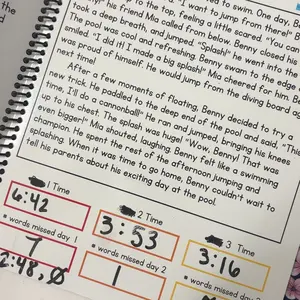 ed to swim. One day, B
to the top, feeling a little scared. "You can
"I want to jump from there!" B
his friend Mia called from below. Benny closed his
took a deep breath, and jumped. "Splash!" he went into the
The pool was cool and refreshing. Benny swam to the edge
smiled. "I did it! I made a big splash!" Mia cheered for him. B
was proud of himself. He would jump from the diving board ag
next time!
After a few moments of floating, Benny decided to try a
new trick. He paddled to the deep end of the pool and said, "This
time, I'll do a cannonball!" He ran and jumped, bringing his knees
up to his chest. The splash was huge! "Wow, Benny! That was
even bigger!" Mia shouted, laughing. Benny felt like a swimming
champion. He spent the rest of the afternoon jumping and
splashing. When it was time to go home, Benny couldn't wait to
tell his parents about his exciting day at the pool.
the
d
1 Time
2 Time
3 Time
6:42
3:53
3:16
words missed day 1
words missed day 2
words missed day
7
1
2:48